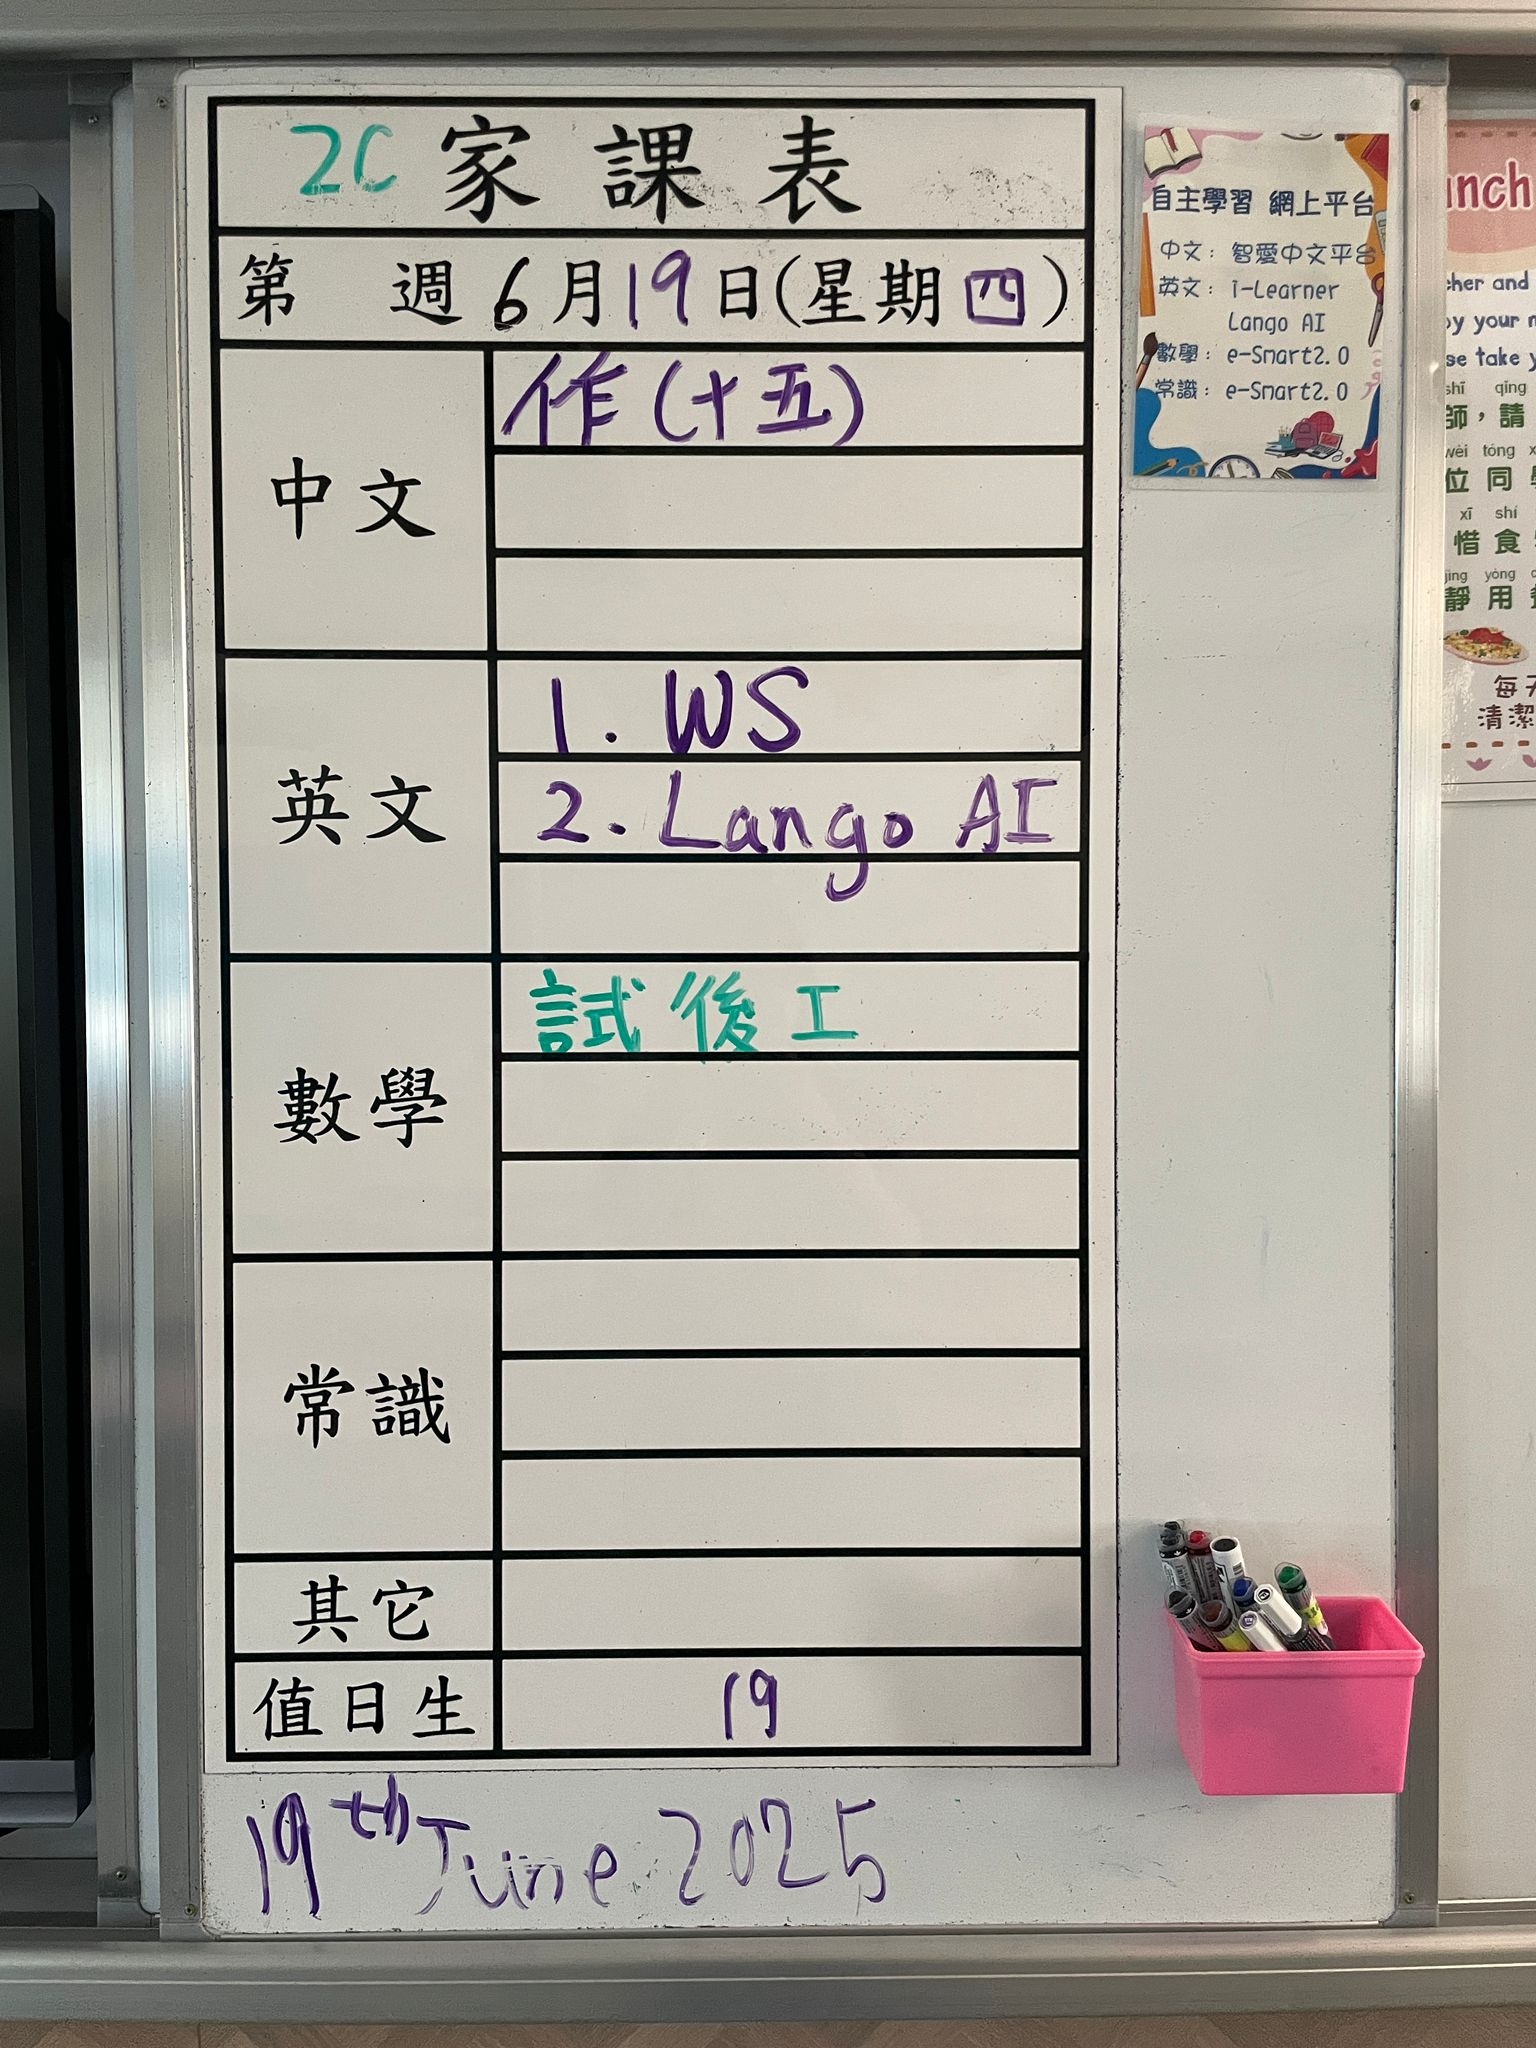 2C 家課表
第 週 6月19日(星期四)
中文
作(十五)
英文
1. WS
2. Lango AI
數學
試後工
常識
其它
值日生
19
19th June 2025
自主學習 網上平台
中文: 智愛中文平台
英文: i-Learner
Lango AI
數學: e-Smart2.0
常識: e-Smart2.0
cher and
by your
se take
shī qǐng
師，請
wèi tóng
位同
xī shí
惜食
jìng yòng
靜用
每天
清潔